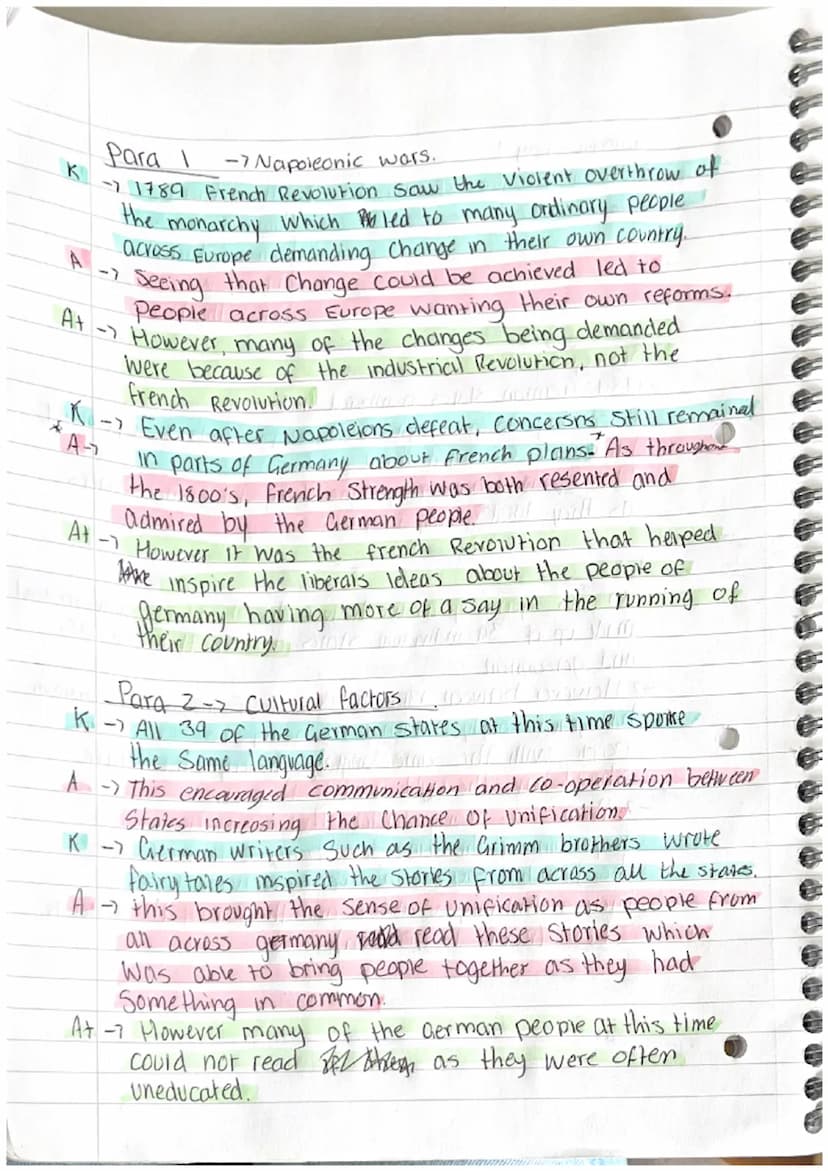 Para 1 -> Napoleonic wars.
K -> 1789 French Revolution saw the violent overthrow of
the monarchy which led to many ordinary people
across Europe demanding change in their own country.
A -> Seeing that change could be achieved led to
people across Europe wanting their own reforms.
A+ -> However, many of the changes being demanded
were because of the industrial Revolution, not the
french Revolution.
K -> Even after Napoleions defeat, concersns still remained
* A -> in parts of Germany about french plans.* As throughout
the 1800's, french strength was both resented and
admired by the German people.
A+ -> However it was the french Revolution that helped
inspire the liberals ideas about the people of
germany having more of a say in the running of
their country.
Para 2 -> Cultural factors.
K -> All 39 of the German states at this time spoke
the same language.
A -> This encouraged communication and co-operation between
states increasing the chance of unification.
K -> German writers such as the Grimm brothers wrote
fairytales inspired the stories from across all the states.
A -> this brought the sense of unification as people from
all across germany read these stories which
was able to bring people together as they had
something in common.
A+ -> However many of the German people at this time
could not read as they were often
uneducated.